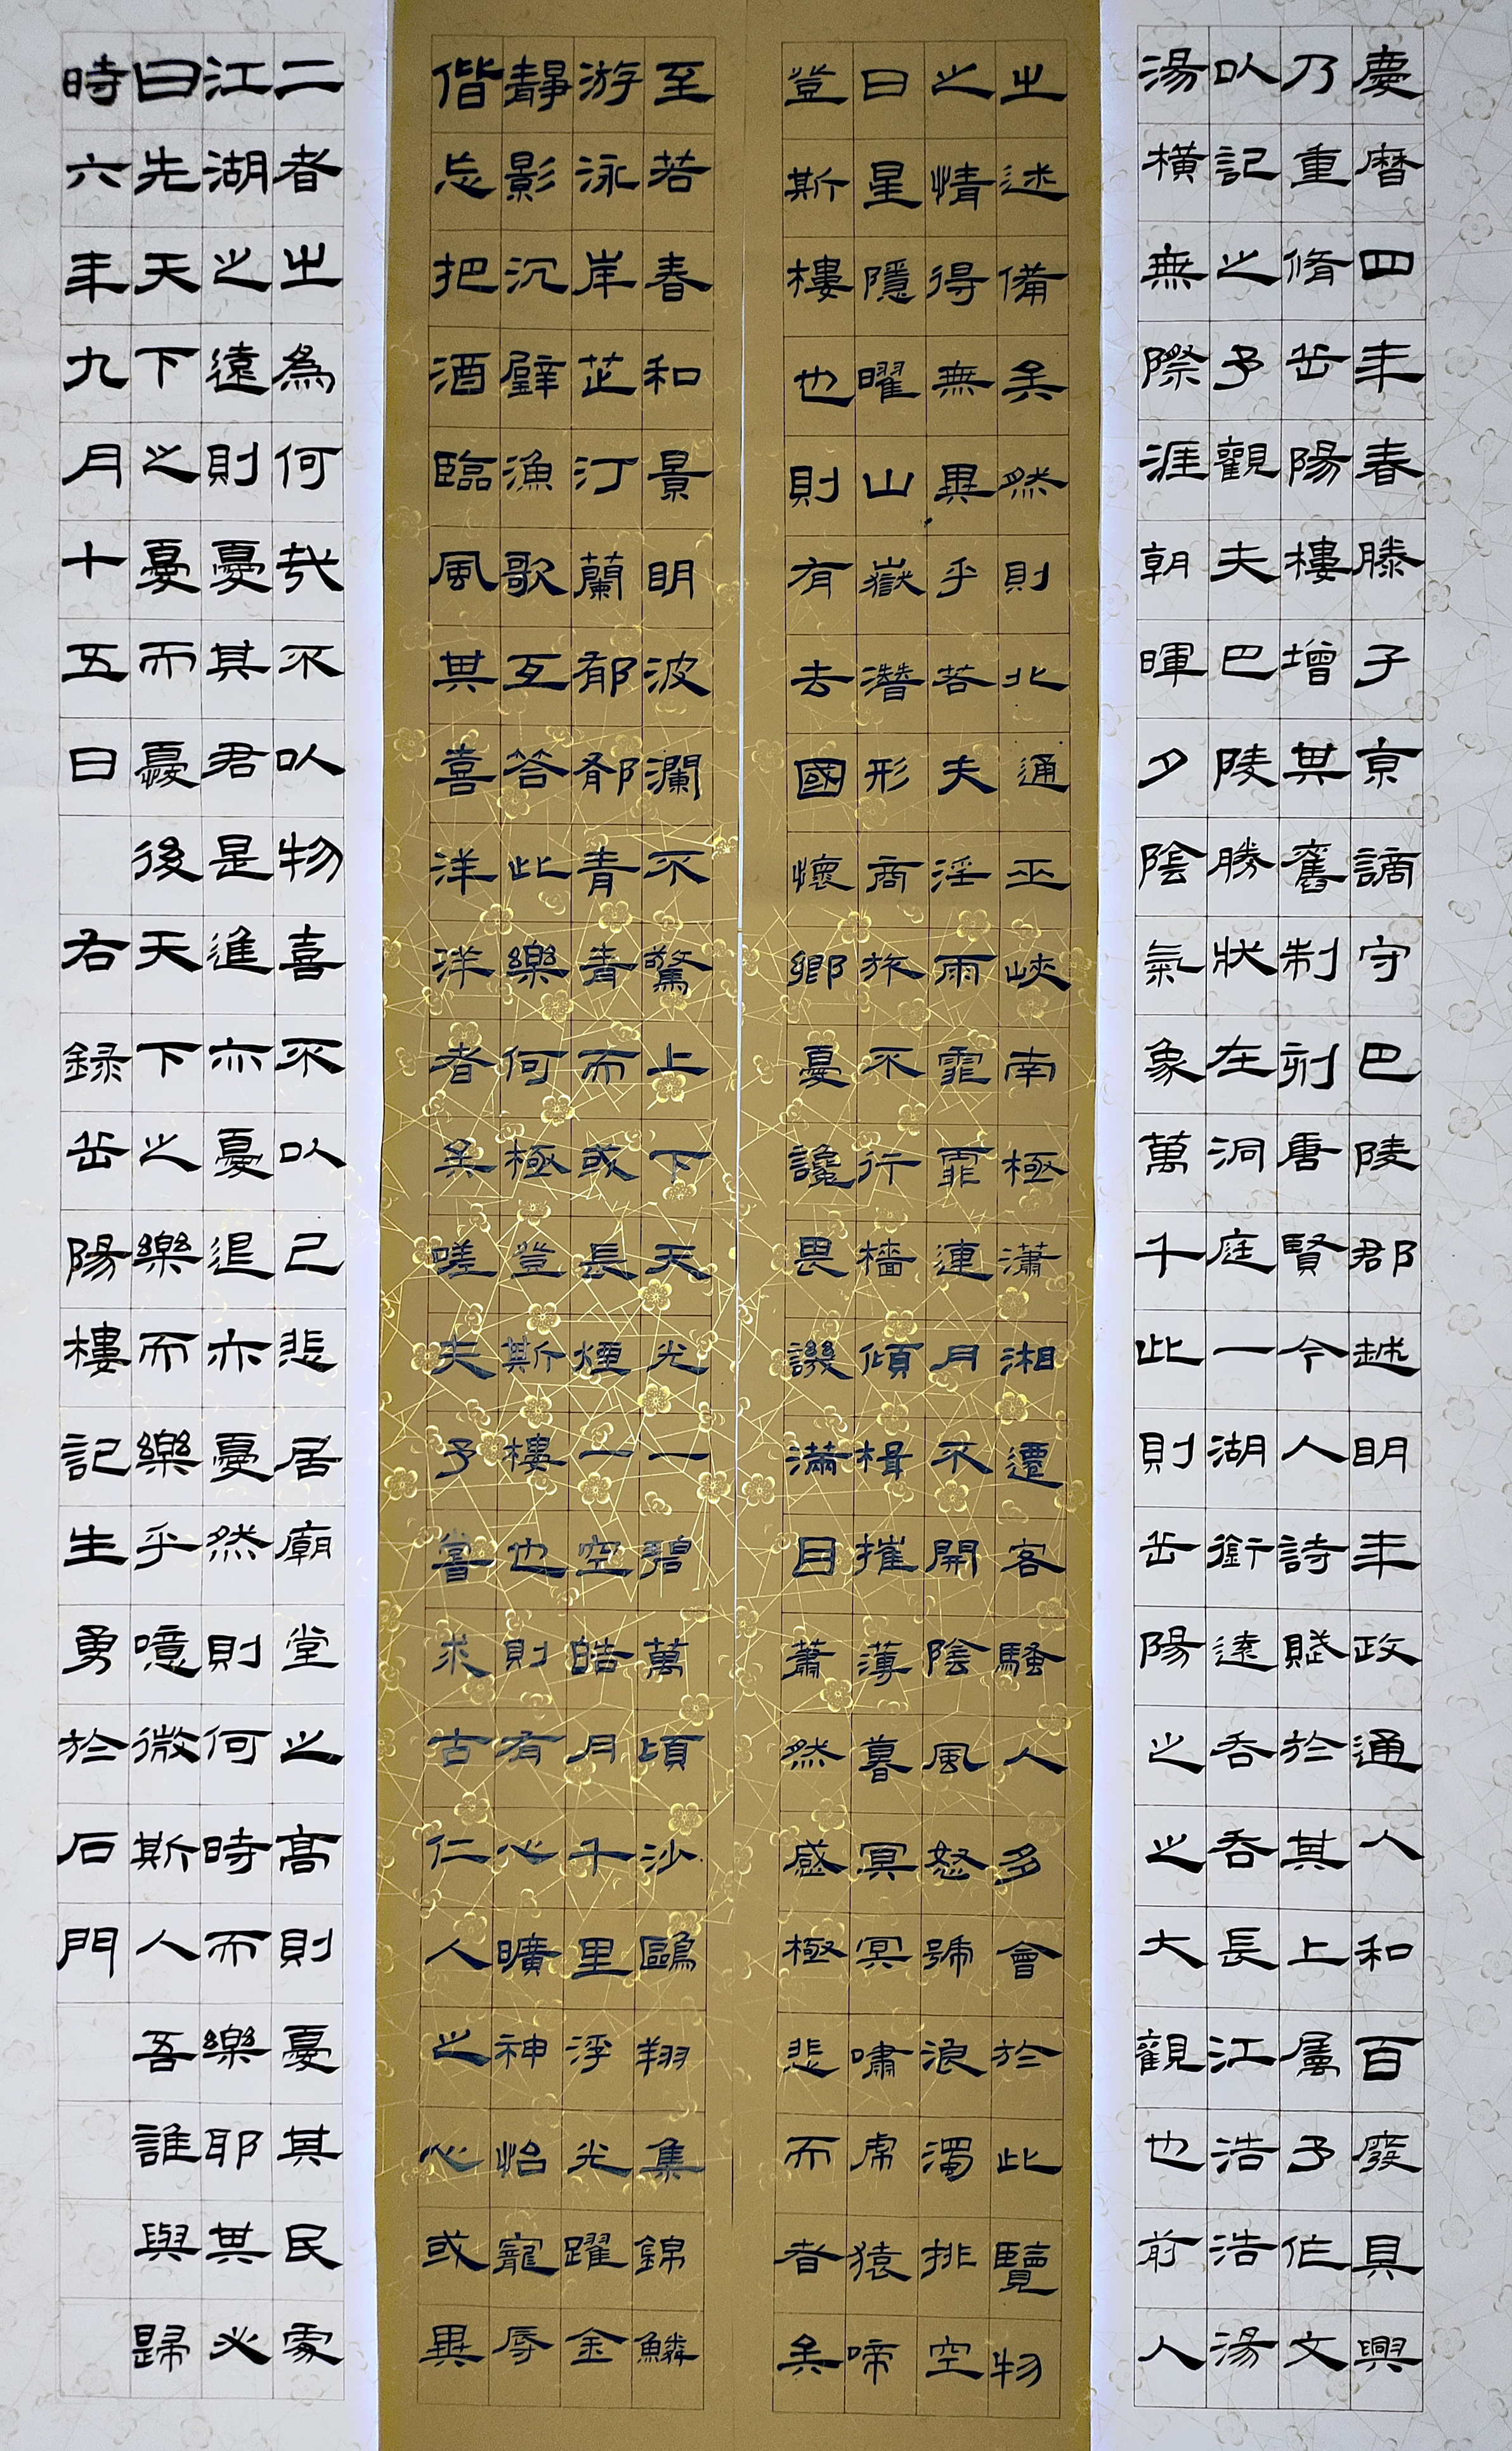 慶暦四年春滕子京謫守巴陵郡越明年政通人和百廢具興
乃重脩岳陽樓增其舊制刻唐賢今人詩賦於其上屬予作文
以記之予觀夫巴陵勝狀在洞庭一湖銜遠吞吞長江浩浩湯
湯橫無際涯朝暉夕陰氣象萬千此則岳陽之之大觀也前人
之述備矣然則北通巫峽南極瀟湘遷客騷人多會於此覽物
之情得無異乎若夫淫雨霏霏連月不開陰風怒號濁浪排空
日星隱曜山嶽潛形商旅不行檣傾楫摧薄暮冥冥嘯虎猿啼
登斯樓也則有去國懷鄉憂讒畏譏滿目蕭然感極悲而者矣
至若春和景明波瀾不驚上下天光一碧萬頃沙鷗翔集錦鱗
游泳岸芷汀蘭郁郁青青而或長煙一空皓月千里浮光躍金
靜影沉璧漁歌互答此樂何極登斯樓也則有心曠神怡寵辱
偕忘把酒臨風其喜洋洋者矣嗟夫予嘗求古仁人之心或異
二者之為何哉不以物喜不以己悲居廟堂之高則憂其民處
江湖之遠則憂其君是進亦憂退亦憂然則何時而樂耶其必
曰先天下之憂而憂後天下之樂而樂乎噫微斯人吾誰與歸
時六年九月十五日 右録岳陽樓記生勇於石門